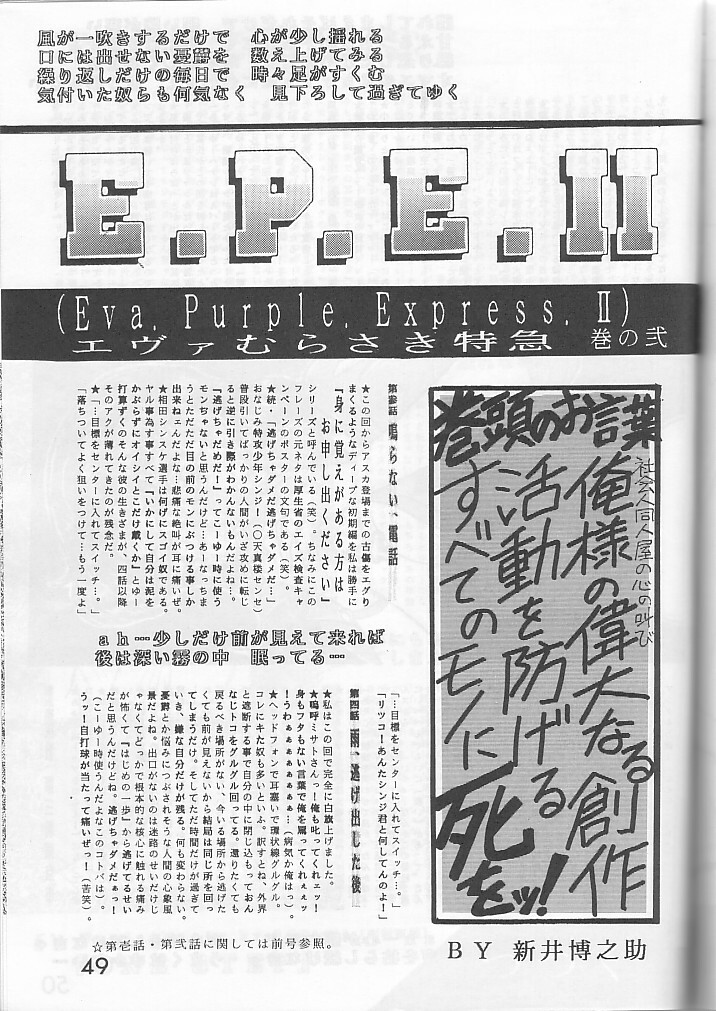 風が一吹きするだけで　心が少し揺れる
口には出せない憂鬱を　数え上げてみる
繰り返しだけの毎日で　時々足がすくむ
気付いた奴らも何気なく　見下ろして過ぎてゆく
E.P.E.II
(Eva. Purple. Express. Ⅱ)
エヴァむらさき特急　巻の弐
巻頭のお言葉
社会人同人屋の心の叫び
俺様の偉大なる創作
活動を防げる
すべてのモノに
死をッ!
BY 新井博之助
第参話 鳴らない、電話
★この回からアスカ登場までの古傷をエグり
まくるようなディープな初期編を私は勝手に
『身に覚えがある方は
お申し出ください』
シリーズと呼んでいる（笑）。ちなみにこの
フレーズの元ネタは厚生省のエイズ検査キャ
ンペーンのポスターの文句である（笑）。
★続・「逃げちゃダメだ逃げちゃダメだ…」
おなじみ特攻少年シンジ！（〇天真楼センセ）
普段引いてばっかりの人間がいざ攻めに転じ
ると逆に引き際がわかんないもんだよね…。
『逃げちゃだめだ！』ってこーゆー時に使う
モンちゃないと思うんだけど…あーなっちま
うとただただ目の前のモンにぶつける事しか
出来ねェんだよな…悲痛な絶叫が耳に痛いぜ。
★相田シンスケ選手は何げにスゴイ奴である。
ヤル事為す事すべて『いかにして自分は泥を
かぶらずにオイシイとこだけ戴くか』とゆー
打算ずくのそんな彼の生きざまが、四話以降
そのアクが薄れてきたのが残念だ。
★「…目標をセンターに入れてスイッチ…。」
「落ちついてよく狙いをつけて…もう一度よ」
ah…少しだけ前が見えて来れば
後は深い霧の中　眠ってる…
「…目標をセンターに入れてスイッチ…。」
「リツコ！あんたシンジ君と何してんのよ！」
第四話 雨、逃げ出した後
★私はこの回で完全に白旗上げました。
★嗚呼ミサトさんっ！俺も叱ってくれェッ！
身もフタもない言葉で俺を罵ってくれぇェッ
！うわぁぁぁぁぁぁぁ…（病気か俺はっ）。
★ヘッドフォンで耳塞いで環状線グルグル。
コレにキた奴も多いといふ。訳すとね、外界
と遮断する事で自分の中に閉じ込もっておん
なじトコをグルグル回ってる。還りたくても
戻るべき場所がない、今いる場所から逃げた
くても前が見えないから結局は同じ所を回っ
てしまうだけ。そしてただ時間だけが過ぎて
いき、嫌な自分だけが残る。何も変わらない。
憂鬱とか悩みにつぶされそうな人間の心象風
景だよね。出口がないのは迷路のせいだけじ
ゃなくてどっかで根本的な核心に触れる痛み
が怖くて『はじめの一歩』から逃げてるせい
だと思うんだけどね。逃げちゃダメだぁっ！
（こーゆー時使うんだよなこのコトバは）。
うッ！自打球が当たって痛いぜっ！（苦笑）。
☆第壱話・第弐話に関しては前号参照。
49